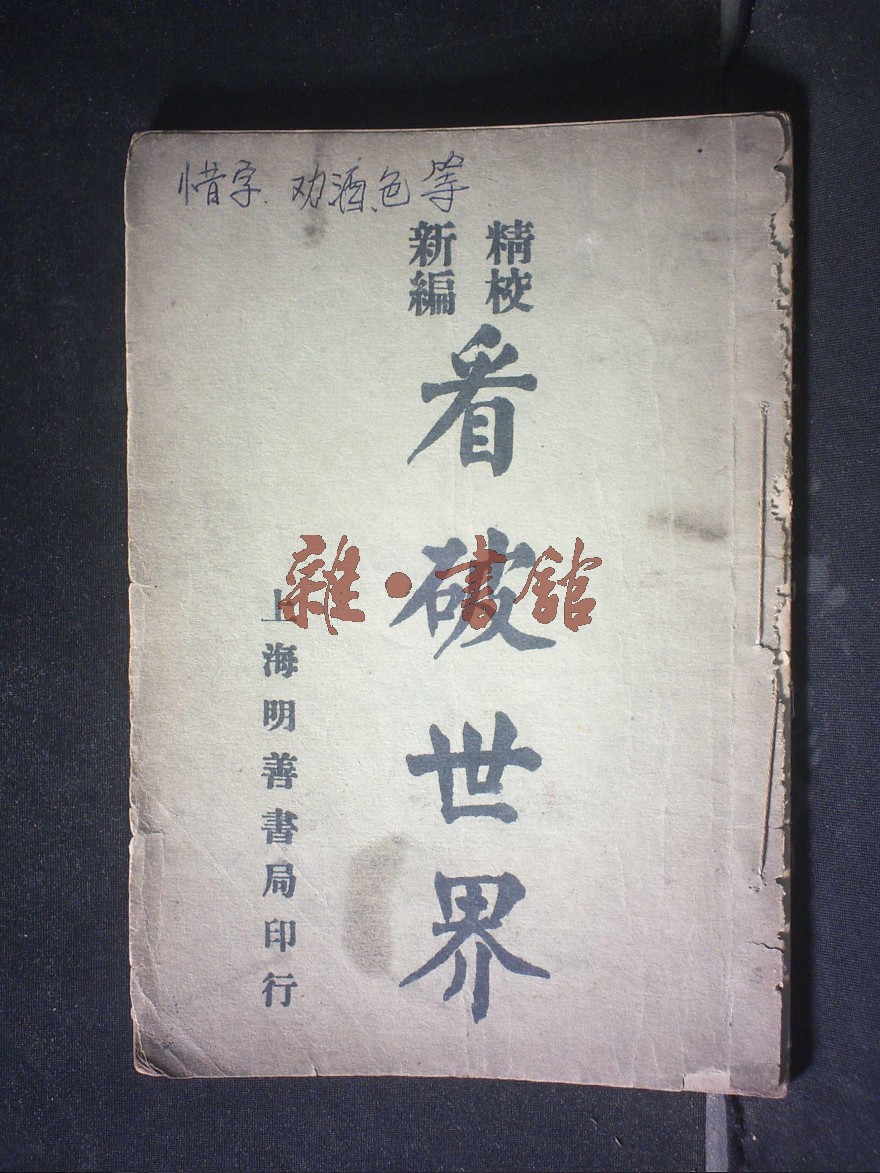 惜字、劝酒色等
精校
新編
看破世界
上海明善書局印行
雜·書館